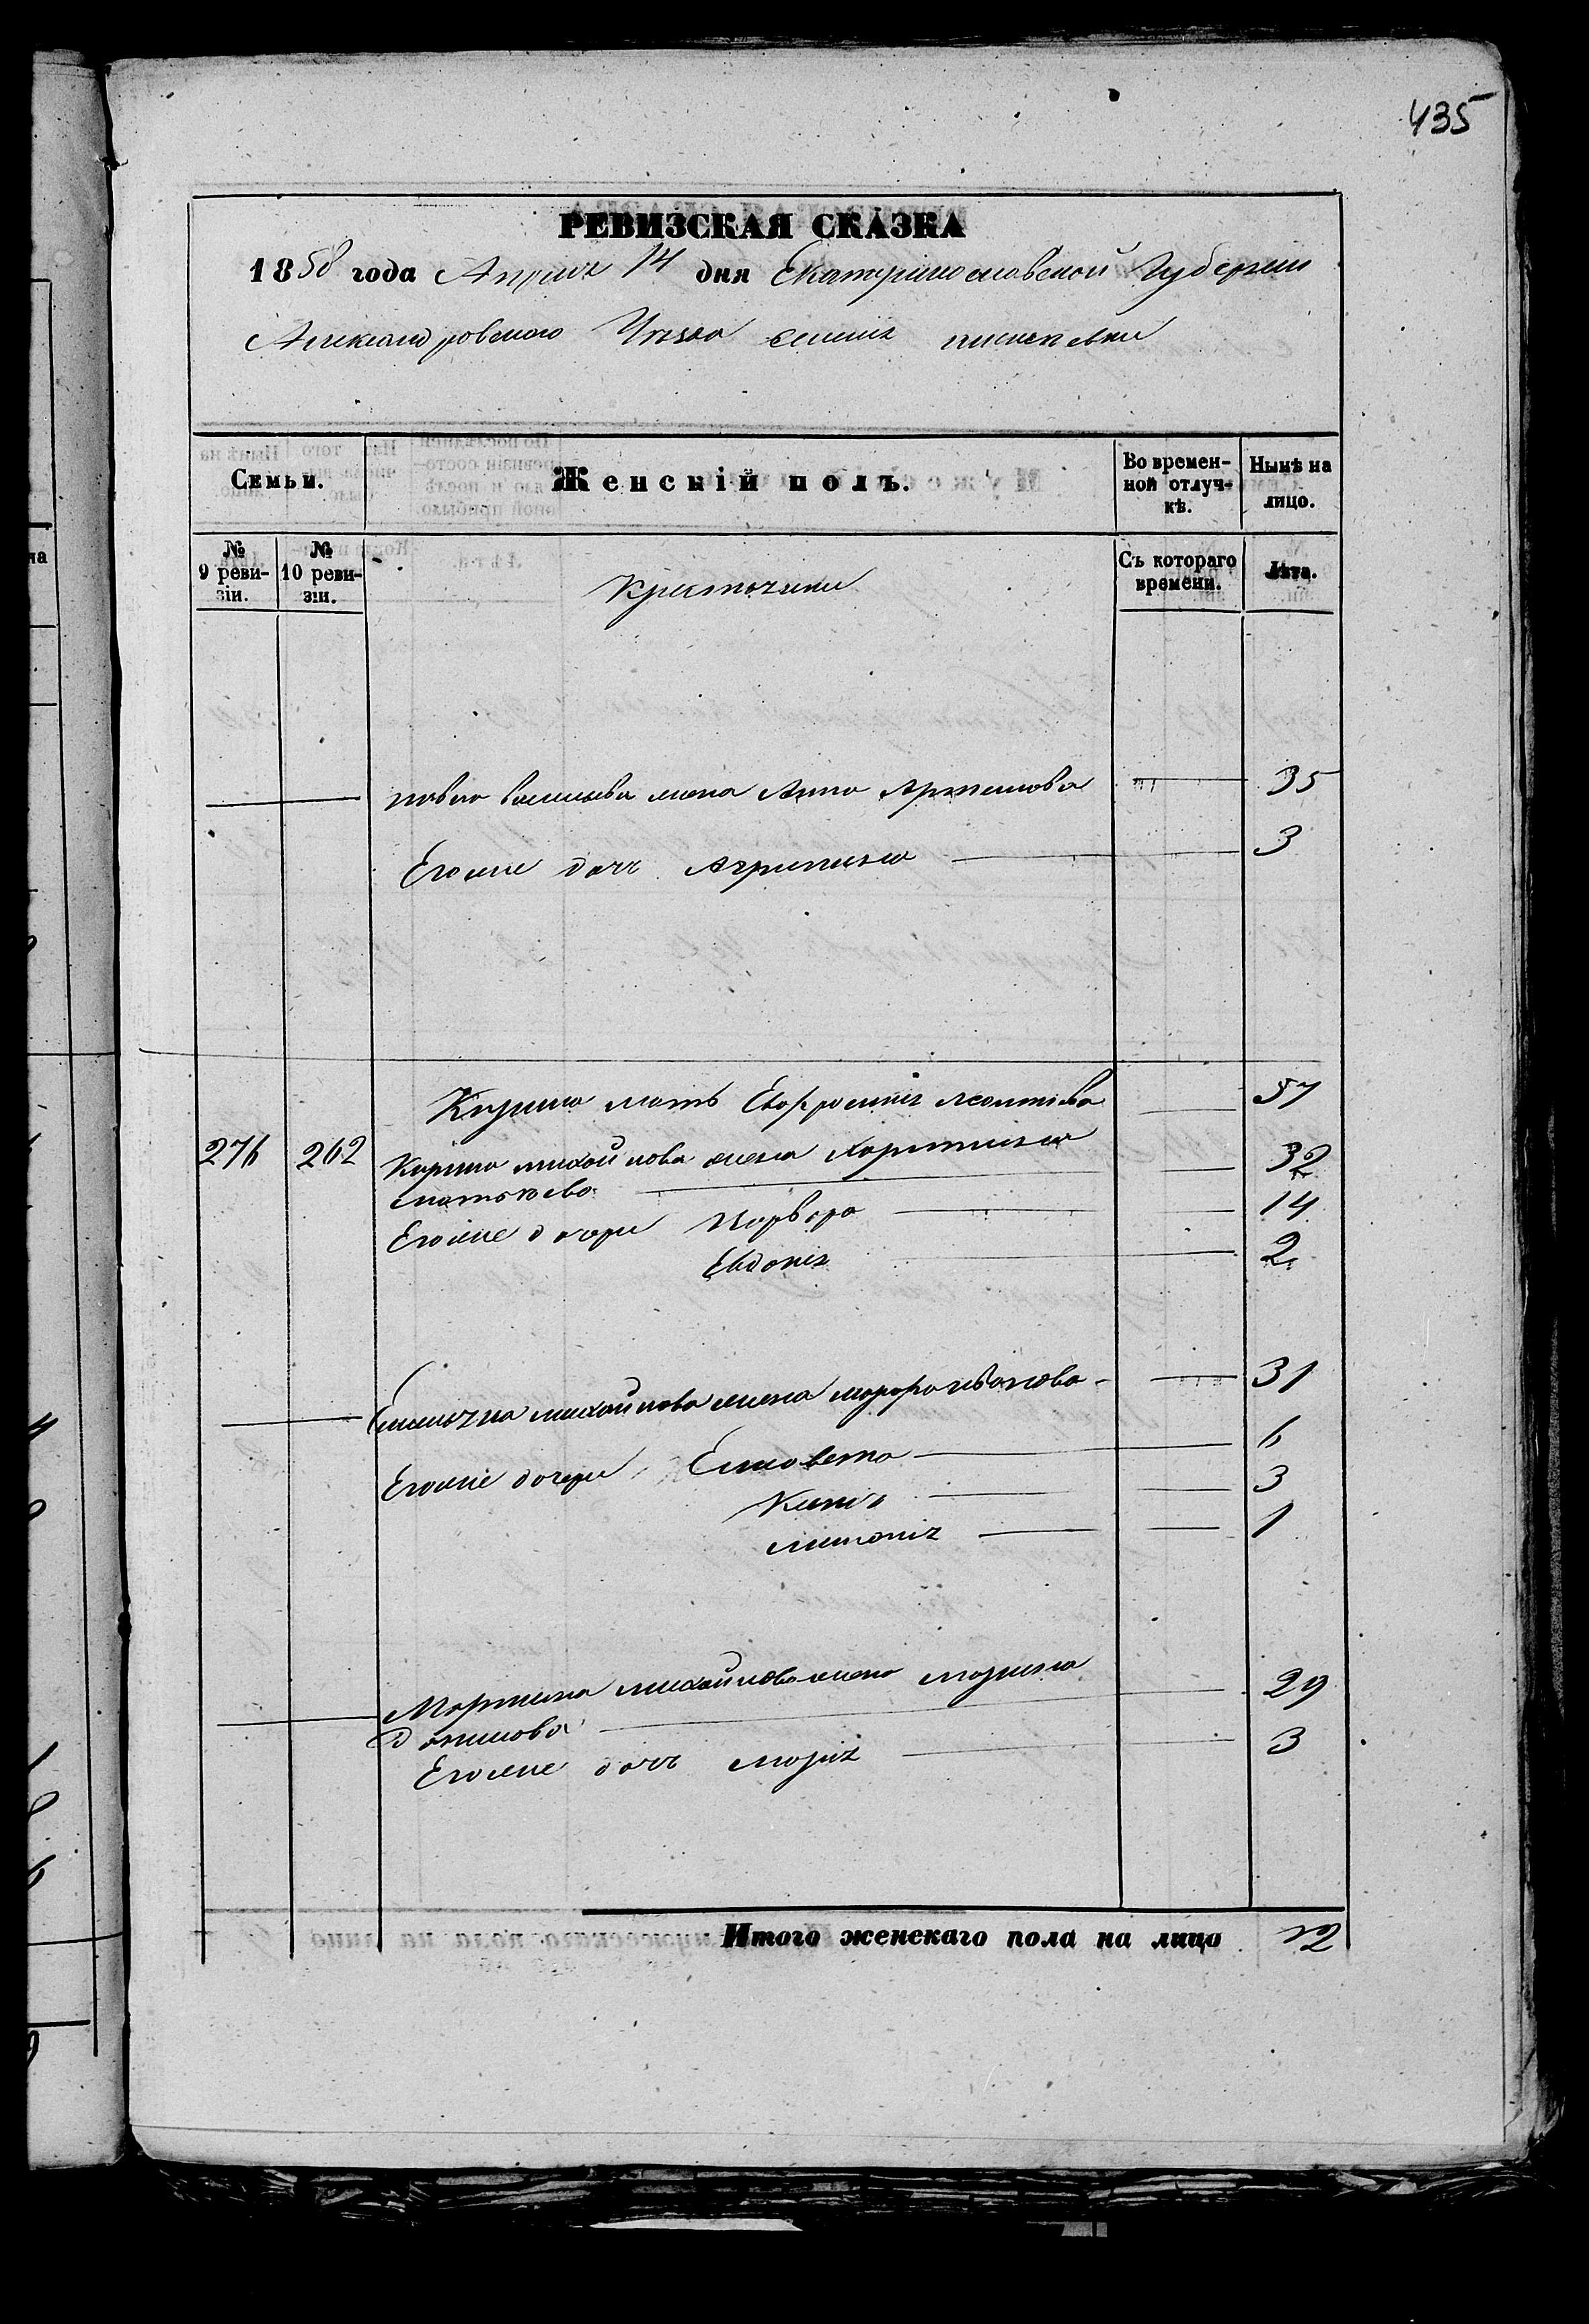 435
РЕВИЗСКАЯ СКАЗКА
1858 года Апреля 14 дня Екатеринославской Губернии
Александровского Уезда
Семьи. Женскій полъ. Во временной отлучкѣ. Нынѣ на лицо.
№ 9 ревизіи. № 10 ревизіи. Съ котораго времени. Лѣта.
Крестьяне
жена Анна Артемова 35
Егоже дочь Агрипина 3
Кирила мать Евфросинія Леонтіева 57
276 262 Кирила Михайлова жена Харитина 32
Матвѣева
Егоже дочери Варвара 14
Евдокія 2
Емельяна Михайлова жена Иванова 31
Егоже дочери Елисавета 6
3
1
Мартина Михайлова жена Марина 29
Данилова
Егоже дочь Марія 3
Итого женскаго пола на лицо 12